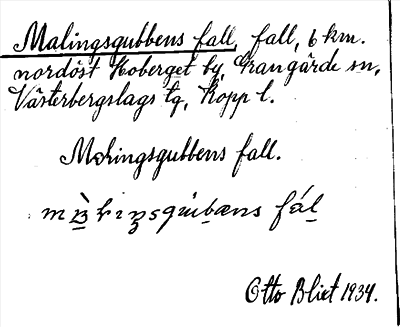 Malingsgubbens fall, fall, 6 km.
nordöst Hoberget by, Grangärde sn,
Västerbergslags tg, Kopp l.
Malingsgubbens fall.
Otto Blixt 1934.